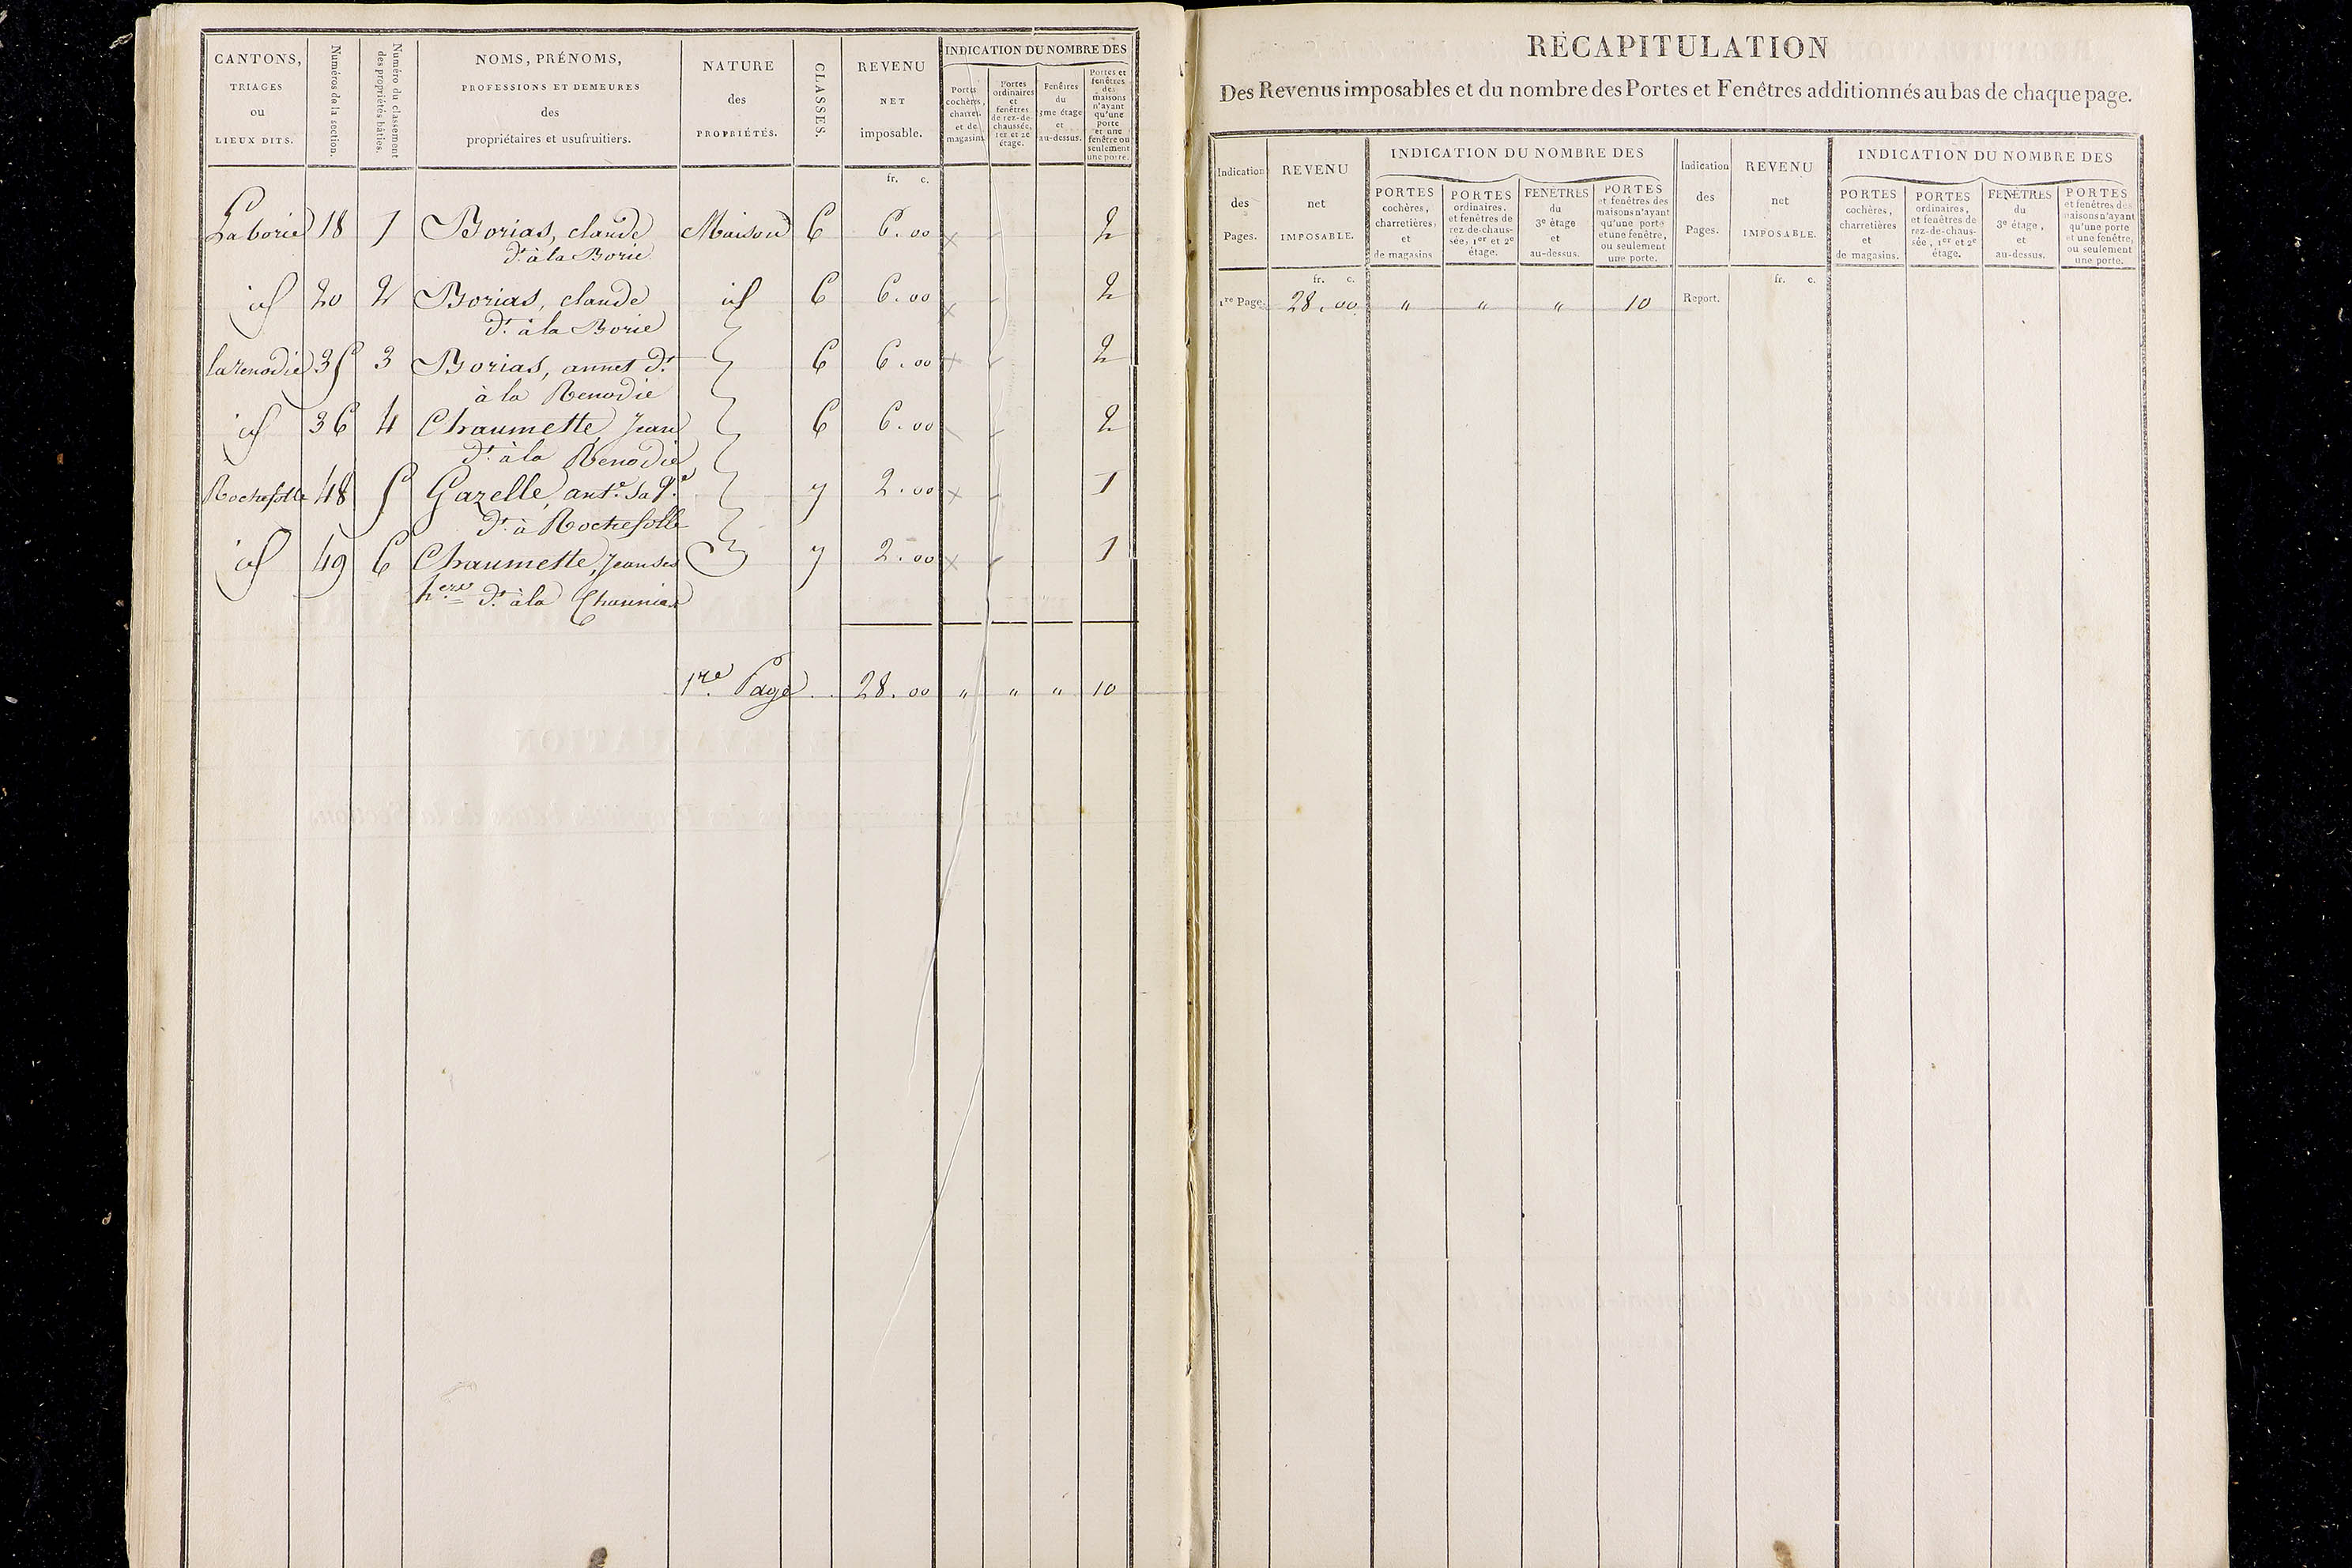 CANTONS,
TRIAGES
ou
LIEUX DITS.
Numéros de la section.
Numéro du classement
des propriétés bâties.
NOMS, PRÉNOMS,
PROFESSIONS ET DEMEURES
des
propriétaires et usufruitiers.
NATURE
des
PROPRIÉTÉS.
CLASSES.
REVENU
NET
imposable.
INDICATION DU NOMBRE DES
Portes
cochères,
charret.
et de
magasins
Portes
ordinaires
et
fenêtres
de rez-de-
chaussée,
1er et 2e
étage.
Fenêtres
du
3me étage
et
au-dessus.
Portes et
fenêtres
des
maisons
n'ayant
qu'une
porte
et une
fenêtre ou
seulement
une porte.
fr. c.
La borie 18 1 Borias, claude Maison 6 6.00 2
dt. à la Borie
id 20 2 Borias, claude id 6 6.00 2
dt. à la Borie
la renodie 35 3 Borias, annet dt. 6 6.00 2
à la Renodie
id 36 4 Chaumette, Jean 6 6.00 2
dt. à la Renodie
Rochefolle 48 5 Gazelle, ante. sa Ve. 7 2.00 1
dt. à Rochefolle
id 49 6 Chaumette, Jean ses 7 2.00 1
hers dt. à la
1re Page .. 28.00 " " " 10
RÉCAPITULATION
Des Revenus imposables et du nombre des Portes et Fenêtres additionnés au bas de chaque page.
Indication
des
Pages.
REVENU
net
IMPOSABLE.
INDICATION DU NOMBRE DES
PORTES
cochères,
charretières,
et
de magasins
PORTES
ordinaires.
et fenêtres de
rez-de-chaus-
sée, 1er et 2e
étage.
FENÊTRES
du
3e étage
et
au-dessus.
PORTES
et fenêtres des
maisons n'ayant
qu'une porte
et une fenêtre,
ou seulement
une porte.
Indication
des
Pages.
REVENU
net
IMPOSABLE.
INDICATION DU NOMBRE DES
PORTES
cochères,
charretières
et
de magasins.
PORTES
ordinaires,
et fenêtres de
rez-de-chaus-
sée, 1er et 2e
étage.
FENÊTRES
du
3e étage,
et
au-dessus.
PORTES
et fenêtres des
maisons n'ayant
qu'une porte
et une fenêtre,
ou seulement
une porte.
fr. c. fr. c.
1re Page. 28.00 " " " 10 Report.